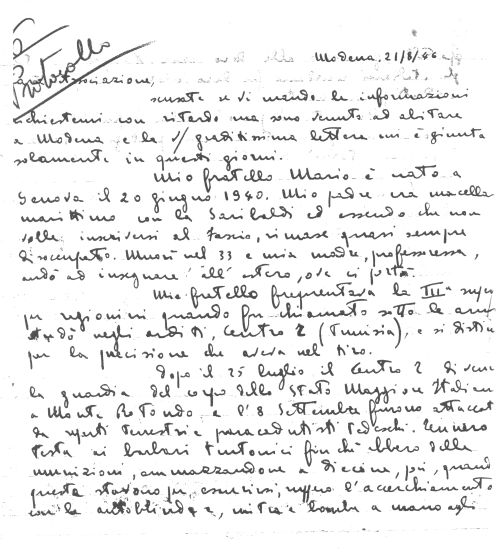 Protocollo
Modena, 21/8/46
Associazione,
scusate se vi mando le informazioni
richiestemi con ritardo ma sono venuto ad abitare
a Modena e la v/ graditissima lettera mi è giunta
solamente in questi giorni.
Mio fratello Mario è nato a
Genova il 20 giugno 1920. Mio padre era
marittimo con la Garibaldi ed essendo che non
volle inscriversi al fascio, rimase quasi sempre
disoccupato. Morì nel 33 e mia madre, professoressa,
andò ad insegnare all'estero, ove ci portò.
Mio fratello frequentava la IIIª
per ragionieri quando fu chiamato sotto le armi
andò negli arditi, Centro 2 (Tunisia), e si
per la precisione che aveva nel tiro.
Dopo il 25 luglio il Centro 2
la guardia del capo dello Stato Maggiore Italian
a Monte Rotondo e l'8 Settembre furono attaccat
da reparti terrestri e paracadutisti tedeschi. Tennero
testa ai barbari teutonici finchè ebbero delle
munizioni, ammazzandone a diecine, poi, quand
queste stavano per esaurirsi, ruppero l'accerchiamento
con le autoblinde, mitra e bombe a mano